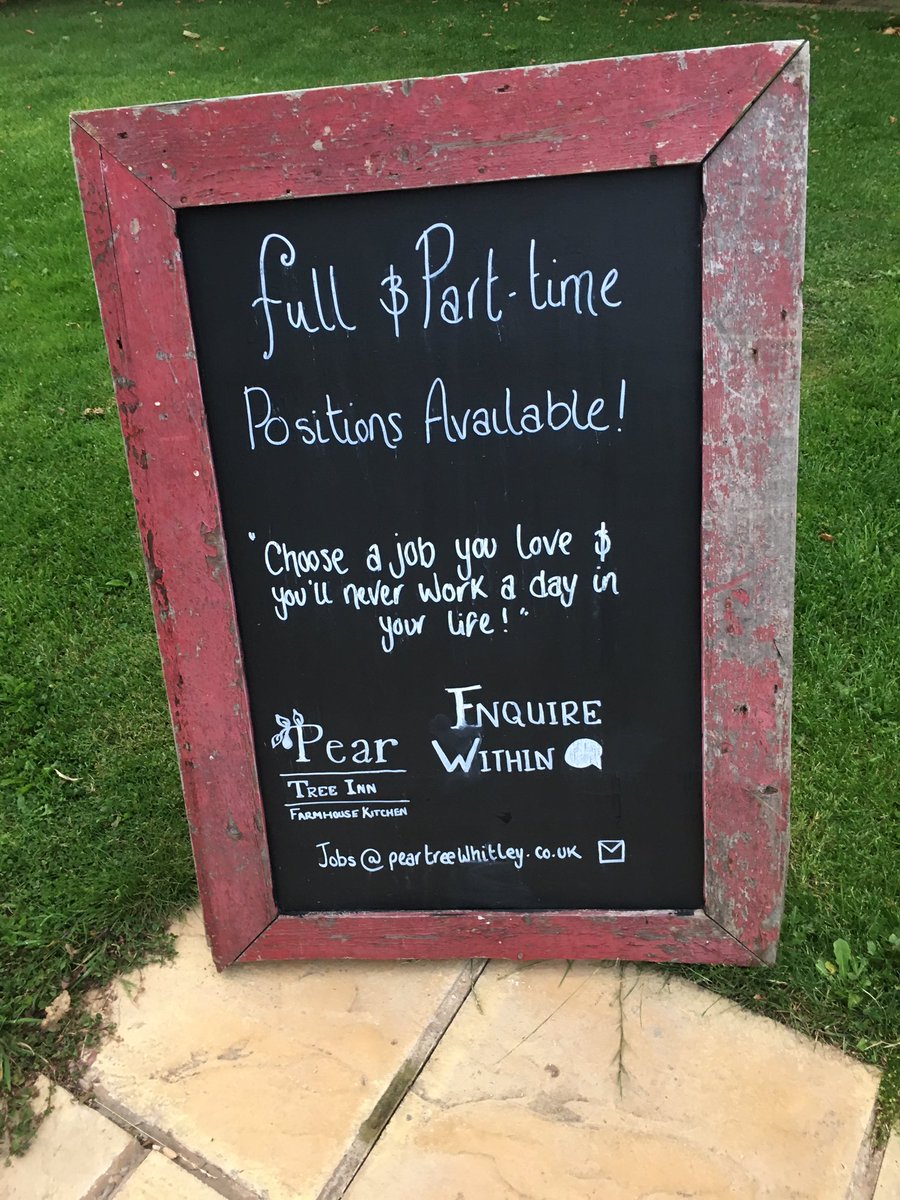 Full & Part-time
Positions Available!
"Choose a job you love &
you'll never work a day in
your life!"
ENQUIRE
WITHIN
Pear
TREE INN
FARMHOUSE KITCHEN
Jobs@peartreewhitley.co.uk